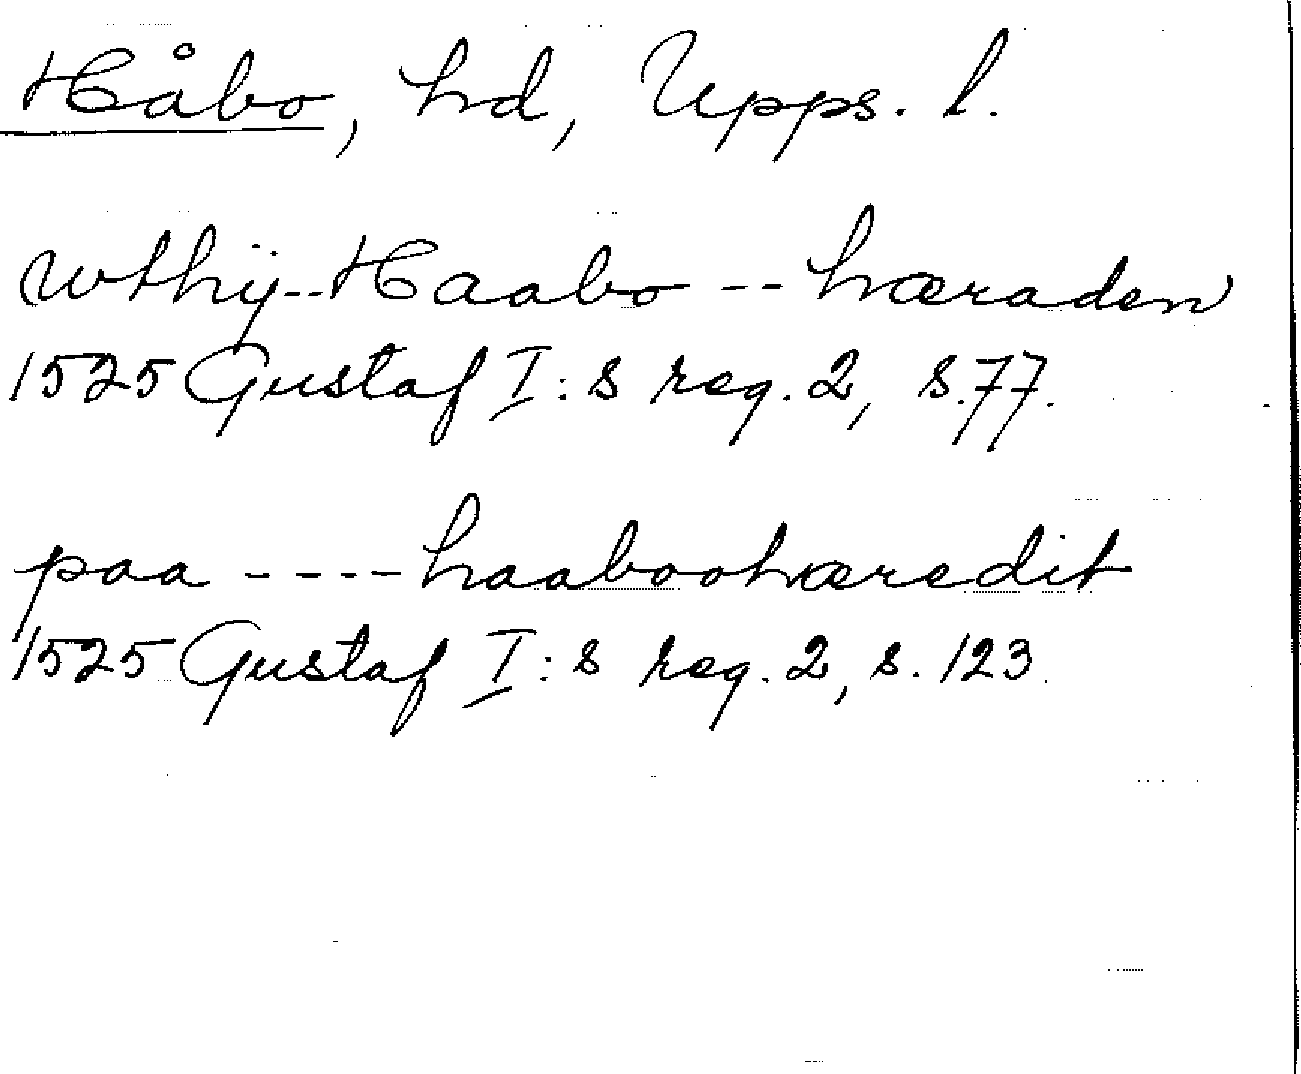 Håbo, hd, Upps. l.
wthij--Haabo--hæraden
1525 Gustaf I:s reg. 2, s.77.
paa ----haaboohæredit
1525 Gustaf I:s reg. 2, s. 123.